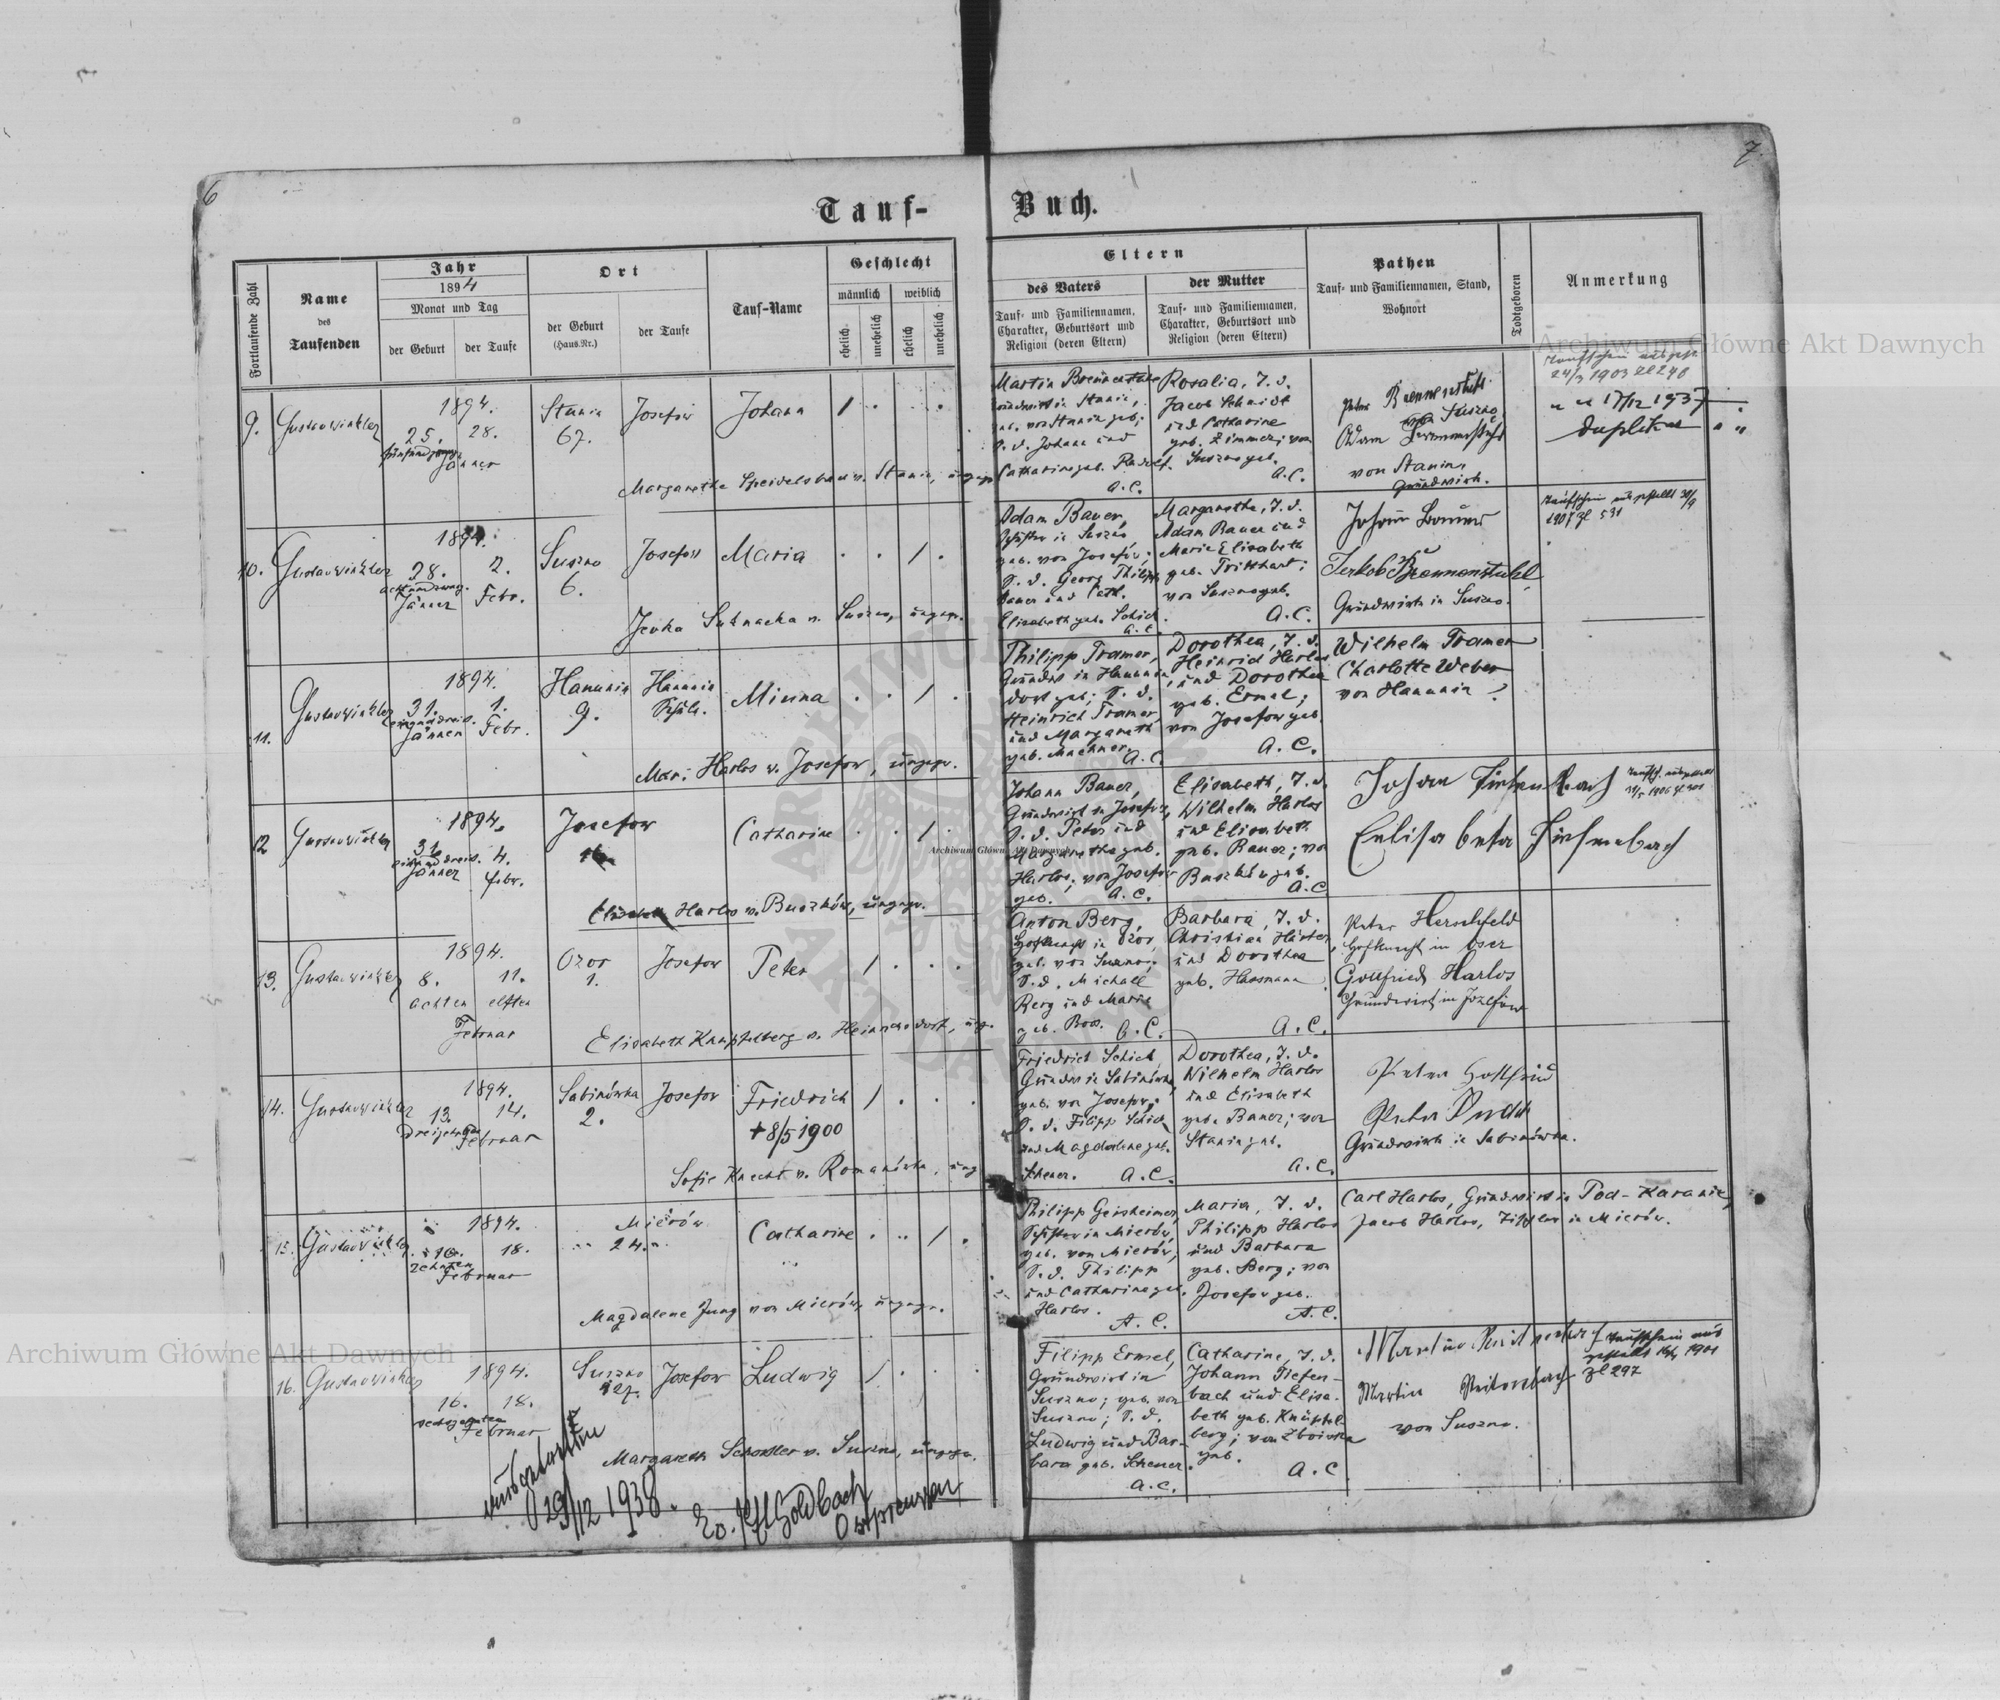 6
7.
Tauf-
Buch.
Fortlaufende Zahl
Name
des
Taufenden
Jahr
1894
Monat und Tag
der Geburt
der Taufe
Ort
der Geburt
(Haus-Nr.)
der Taufe
Tauf-Name
Geschlecht
männlich
weiblich
ehelich
unehelich
ehelich
unehelich
Eltern
des Vaters
Tauf- und Familiennamen,
Charakter, Geburtsort und
Religion (deren Eltern)
der Mutter
Tauf- und Familiennamen,
Charakter, Geburtsort und
Religion (deren Eltern)
Pathen
Tauf- und Familiennamen, Stand,
Wohnort
Todtgeboren
Anmerkung
9. Gustav Winkler
1894.
25. 28.
Jänner
Stanin
67.
Josefów
Johann
Margarethe Speidelsbach v. Stanin,
Martin Brennenstuhl
Grundwirt in Stanin,
geb. von Stanin geb;
S. d. Johann und
Catharine geb. Rudolf.
A. C.
Rosalia, T. d.
Jacob Schmidt
und Catharine
geb. Zimmer; von
Suszno geb.
A. C.
Peter Brennenstuhl
Suszno
Adam Brennenstuhl
von Stanin,
Grundwirth.
24/3 1903 Zl 240
17/12 1937
Duplikat
10. Gustav Winkler
1894.
28. 2.
Jänner Febr.
Suszno
6.
Josefów
Maria
Jevka Suknacka v. Suszno, ungepr.
Adam Bauer,
in Suszno
geb. von Josefów;
S. d. Georg Philipp
Bauer und Cath.
Elisabeth geb. Schick.
A. C.
Margarethe, T. d.
Adam Bauer und
Marie Elisabeth
geb. Tritthart;
von Suszno geb.
A. C.
Johann Bauer
Jakob Brennenstuhl
Grundwirth in Suszno.
Taufschein ausgestellt
1907 Zl 531
11. Gustav Winkler
1894.
31. 1.
Jänner Febr.
Hanunin
9.
Hanunin
Schule.
Minna
Mar: Harlos v. Josefow, ungepr.
Philipp Tramer,
Grundw. in Hanunin,
dort geb; S. d.
Heinrich Tramer,
und Margareth
geb. Machner.
A. C.
Dorothea, T. d.
Heinrich Harlos
und Dorothea
geb. Ermel;
von Josefow geb.
A. C.
Wilhelm Tramer
Charlotte Weber
von Hanunin
12 Gustav Winkler
1894.
31. 4.
Jänner Febr.
Josefow
Catharine
Elisabeth Harlos v. Buszków, ungepr.
Johann Bauer,
Grundwirt in Josefow,
S. d. Peter und
Margarethe geb.
Harlos; von Josefow
geb. A. C.
Elisabeth, T. d.
Wilhelm Harlos
und Elisabeth
geb. Bauer; von
Buszków geb.
A. C.
Johann Tiefenbach
Elisabeta Tiefenbach
13. Gustav Winkler
1894.
8. 11.
achten elften
Februar
Ozor
1.
Josefow
Peter
Elisabeth Knüttelberg v. Heinrichsdorf,
Anton Berg,
Hofknecht in Ozor,
geb. von Suszno;
S. d. Michael
Berg und Marie
geb. Boos. A. C.
Barbara, T. d.
Christian Härter,
und Dorothea
geb. Hausmann
A. C.
Peter Herschfeld
Hofknecht in Oser
Gottfried Harlos
Grundwirth in Jozefow
14. Gustav Winkler
1894.
13. 14.
dreizehnten
Februar
Sabinówka
2.
Josefow
Friedrich
+ 8/5 1900
Sofie Knecht v. Romanówka, ung.
Friedrich Schick
Grundw. in Sabinówka,
geb. von Josefow;
S. d. Filipp Schick
und Magdalene geb.
Scherer. A. C.
Dorothea, T. d.
Wilhelm Harlos
und Elisabeth
geb. Bauer; von
Stanin geb.
A. C.
Peter Gottfried
Grundwirth in Sabinówka.
15. Gustav Winkler
1894.
10. 18.
zehnten
Februar
Mierów
24.
Catharine
Magdalene Jung von Mierów, ungepr.
Philipp Geisheimer,
in Mierów,
geb. von Mierów;
S. d. Philipp
und Catharine geb.
Harlos.
A. C.
Maria, T. d.
Philipp Harlos
und Barbara
geb. Berg; von
Josefow geb.
A. C.
Carl Harlos, Grundwirt in Tod-Karanie,
Jacob Harlos, Tischler in Mierów.
16. Gustav Winkler
1894.
16. 18.
sechzehnten
Februar
Suszno
127.
Josefow
Ludwig
Margareth Schessler v. Suszno, ungepr.
Filipp Ermel,
Grundwirt in
Suszno; geb. von
Suszno; S. d.
Ludwig und Bar-
bara geb. Scherer.
A. C.
Catharine, T. d.
Johann Tiefen-
bach und Elisa-
beth geb. Knüttel-
berg; von Zboiska
geb.
A. C
Martin
von Suszno.
Taufschein aus
gestellt 1901
Zl 297
29/12 1938.
Goldbach
Ostpreussen
Archiwum Główne Akt Dawnych
Archiwum Główne Akt Dawnych
Archiwum Główne Akt Dawnych